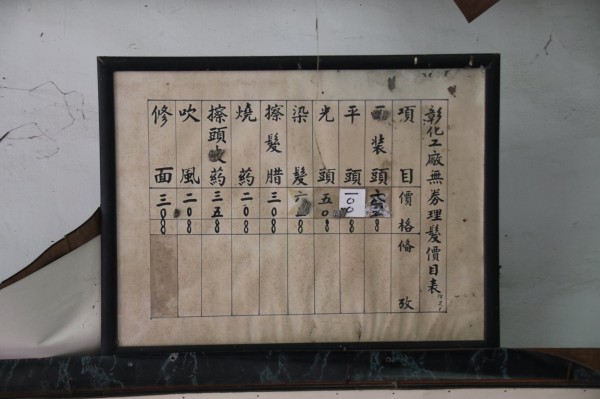 彰化工廠無券理髮價目表
項目 價格 備攷
西裝頭
平頭 一〇〇
光頭 五〇
染髮
擦髮腊 三〇
燒葯 二〇
擦頭皮葯 三五
吹風 二〇
修面 三〇